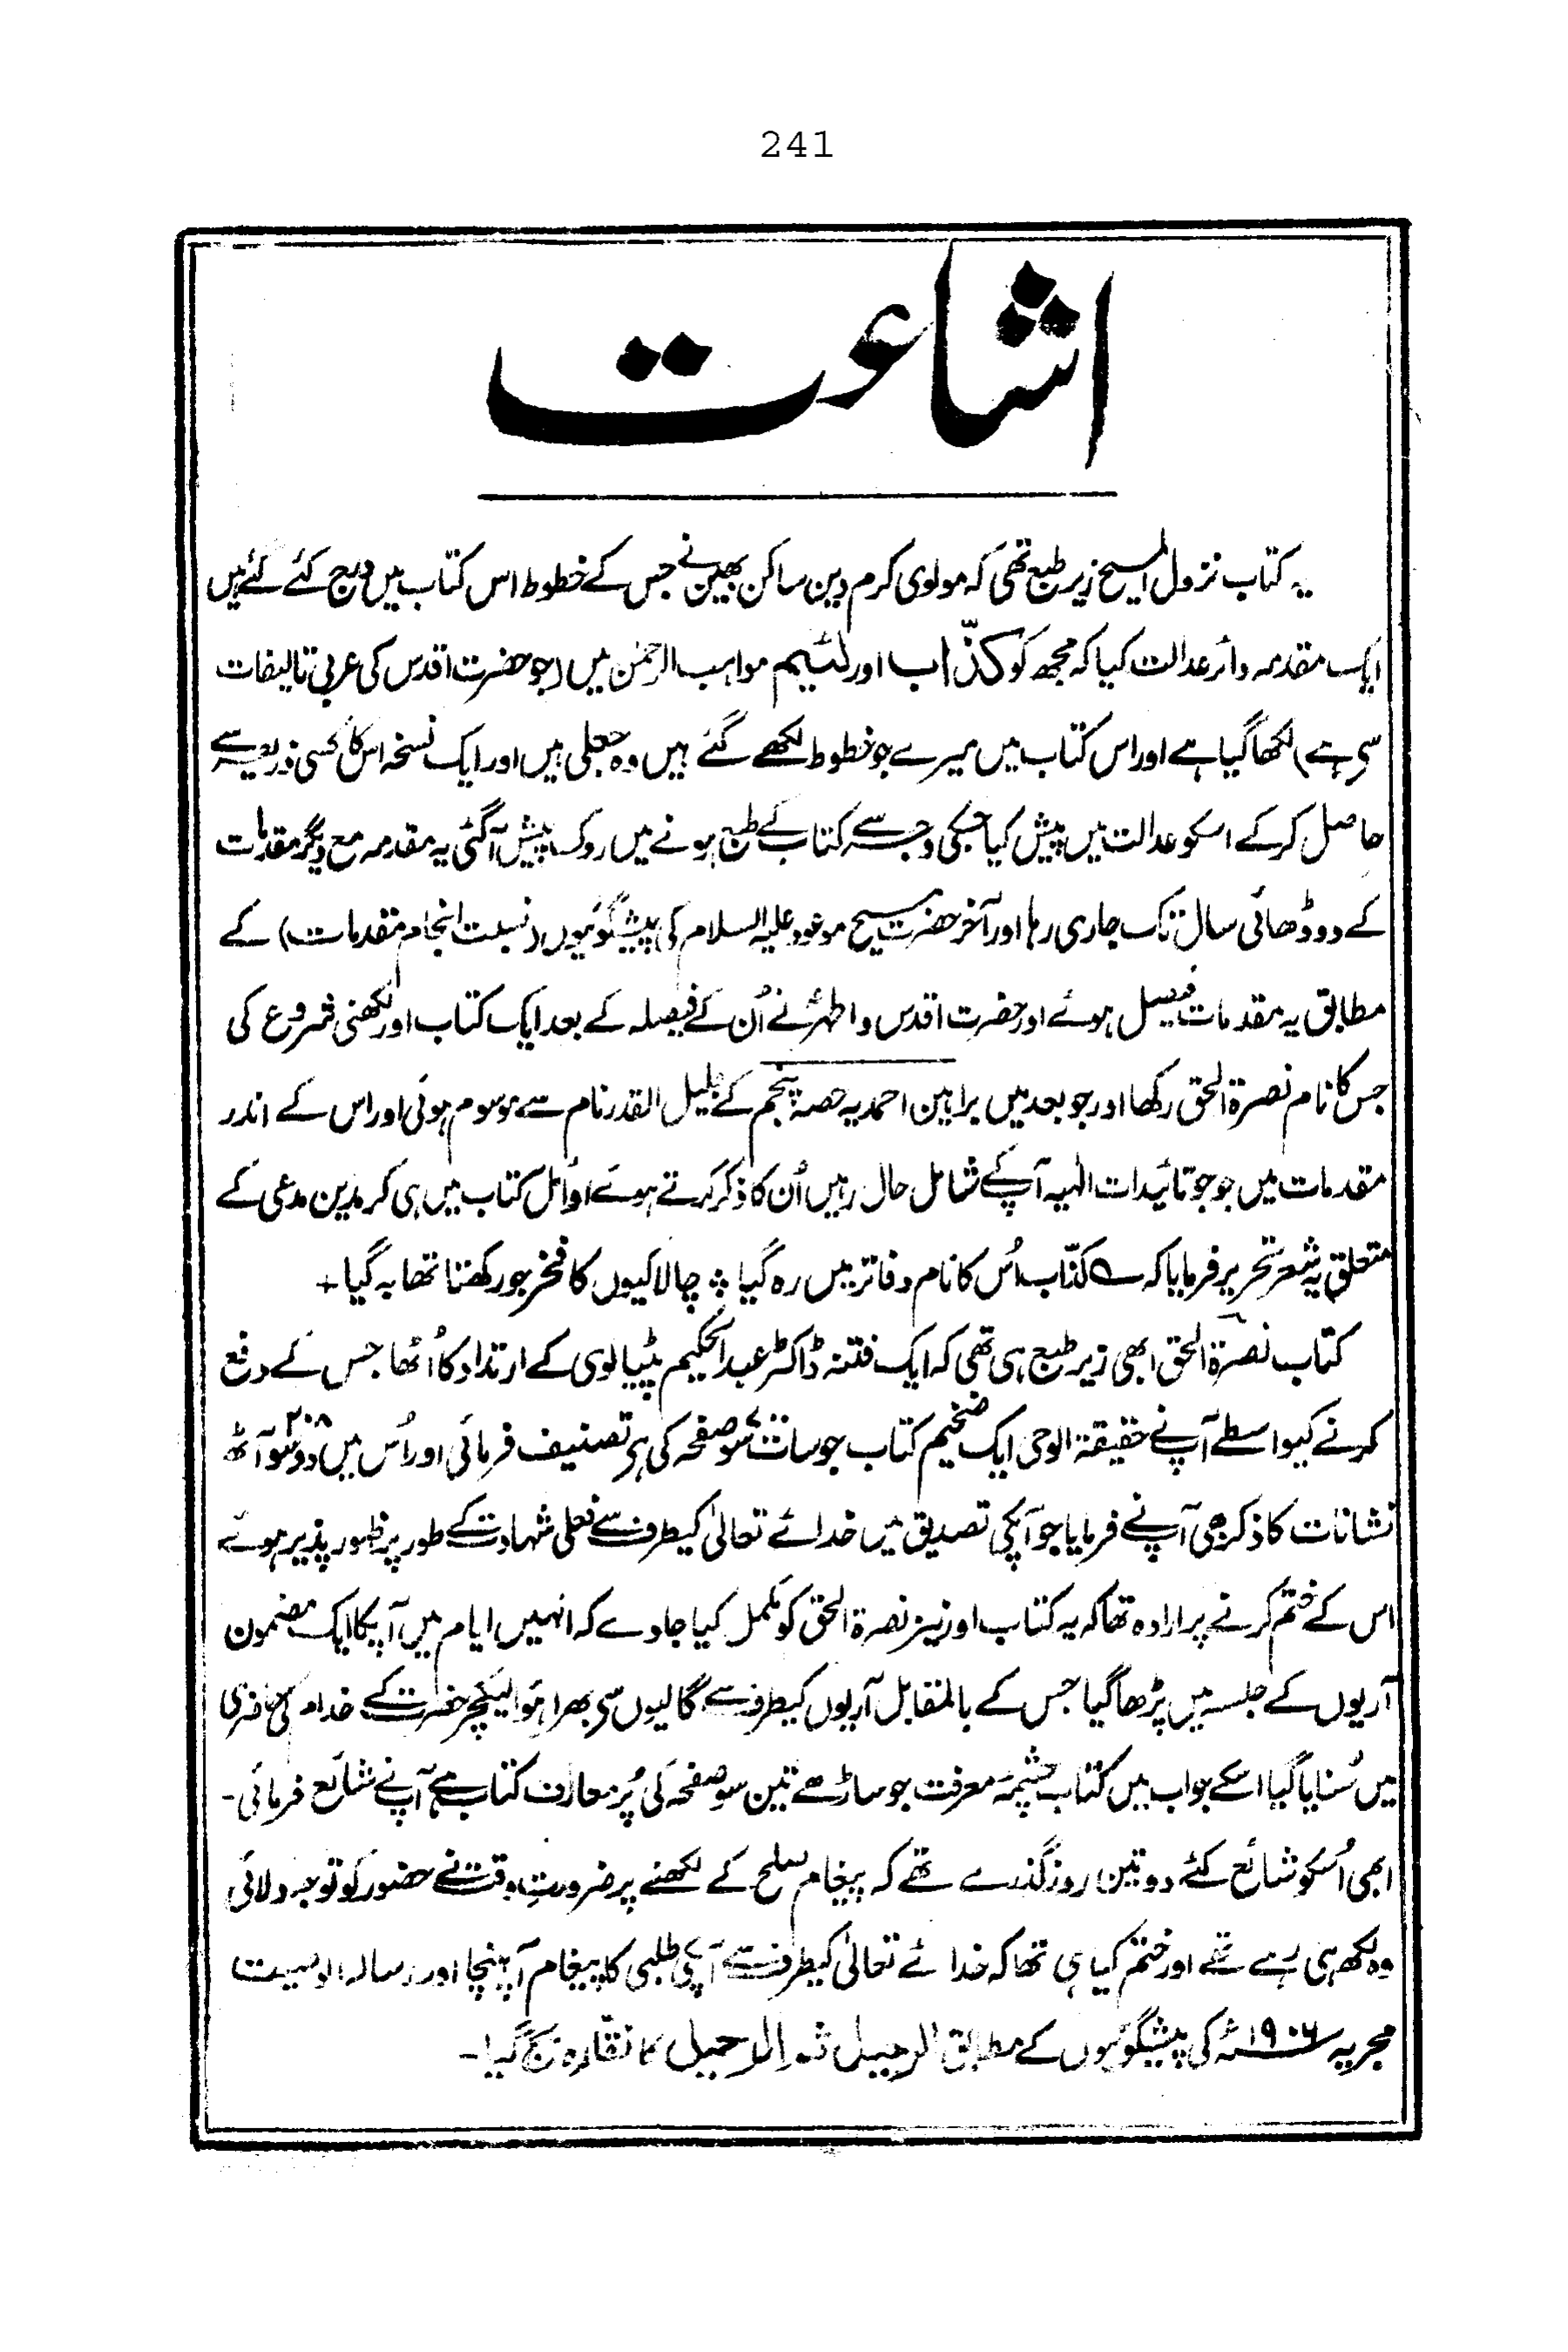 241
اشاعت
یہ کتاب نزول المسیح زیر طبع تھی کہ مولوی کرم دین ساکن بھین نے جس کے خطوط اس کتاب میں درج کئے گئے ہیں
ایک مقدمہ دائر عدالت کیا کہ مجھ کو کذّاب اور لئیم مواہب الرحمٰن میں (جو حضرت اقدس کی عربی تالیفات
سی ہے) لکھا گیا ہے اور اس کتاب میں میرے جو خطوط لکھے گئے ہیں وہ جعلی ہیں اور ایک نسخہ اس کا کسی ذریعہ سے
حاصل کر کے اسکو عدالت میں پیش کیا جسکی وجہ سے کتاب کے طبع ہونے میں روک پیش آگئی یہ مقدمہ مع دیگر مقدمات
کے دو ڈھائی سال تک جاری رہا اور آخر حضرت مسیح موعود علیہ السلام کی پیشگوئیوں (نسبت انجام مقدمات) کے
مطابق یہ مقدمات فیصل ہوئے اور حضرت اقدس و اطہرؑ نے اُن کے فیصلہ کے بعد ایک کتاب اور لکھنی شروع کی
جس کا نام نصرۃ الحق رکھا اور جو بعد میں براہین احمدیہ حصہ پنجم کے جلیل القدر نام سے موسوم ہوئی اور اس کے اندر
مقدمات میں جو جو تائیدات الٰہیہ آپ کے شامل حال رہیں اُن کا ذکر کرتے ہوئے اوائل کتاب میں ہی کرمدین مدعی کے
متعلق یہ شعر تحریر فرمایا کہ ؎ کذّاب اُس کا نام دفاتر میں رہ گیا ؞ چالاکیوں کا فخر جو رکھتا تھا بہ گیا +
کتاب نصرۃ الحق ابھی زیر طبع ہی تھی کہ ایک فتنہ ڈاکٹر عبدالحکیم پٹیالوی کے ارتداد کا اُٹھا جس کے دفع
کرنے کیواسطے آپ نے حقیقۃ الوحی ایک ضخیم کتاب جو سات سو ۷۰۰ صفحہ کی ہی تصنیف فرمائی اور اُس میں دو سو آٹھ ۲۰۸
نشانات کا ذکر بھی آپ نے فرمایا جو آپکی تصدیق میں خدائے تعالیٰ کیطرف سے فعلی شہادت کے طور پر ظہور پذیر ہوئے
اس کے ختم کرنے پر ارادہ تھا کہ یہ کتاب اور نیز نصرۃ الحق کو مکمل کیا جاوے کہ انہیں ایام میں آپکا ایک مضمون
آریوں کے جلسہ میں پڑھا گیا جس کے بالمقابل آریوں کیطرف سے گالیوں سی بھرا ہوا لیکچر حضرت کے خدام کی حاضری
میں سُنایا گیا اسکے جواب میں کتاب چشمہ معرفت جو ساڑھے تین سو صفحہ کی پُر معارف کتاب ہے آپ نے شائع فرمائی۔
ابھی اُسکو شائع کئے دو تین روز گذرے تھے کہ پیغام صلح کے لکھنے پر ضرورتِ وقت نے حضور کو توجہ دلائی
وہ لکھ ہی رہے تھے اور ختم کیا ہی تھا کہ خدائے تعالیٰ کیطرف سے آپکی طلبی کا پیغام آپہنچا اور رسالہ الوصیت
مجریہ ۱۹۰۶ئہ کی پیشگوئیوں کے مطابق الرحیل ثم الرحیل کا نقّارہ بج گیا۔